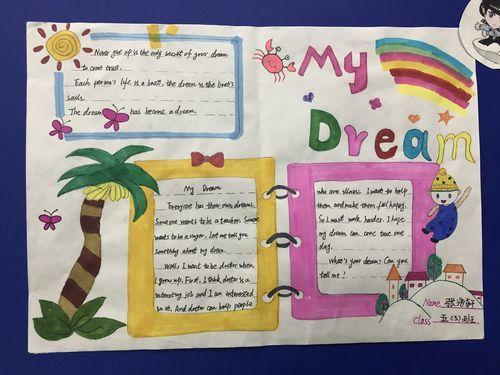 My
Dream
Never give up is the only secret of your dream
to come true.
Each person's life is a boat, the dream is the boat's
sails.
The dream has become a dream.
My Dream
Everyone has their own dreams.
Someone wants to be a teacher. Someone
wants to be a singer. Let me tell you
something about my dream.
Well, I want to be doctor when
I grow up. First, I think doctor is a
interesting job and I am interested
in it. And doctor can help people
who are illness. I want to help
them and make them feel happy.
So I must work harder. I hope
my dream can come true one
day.
What's your dream? Can you
tell me?
Name 张 轩
Class 五(3)班